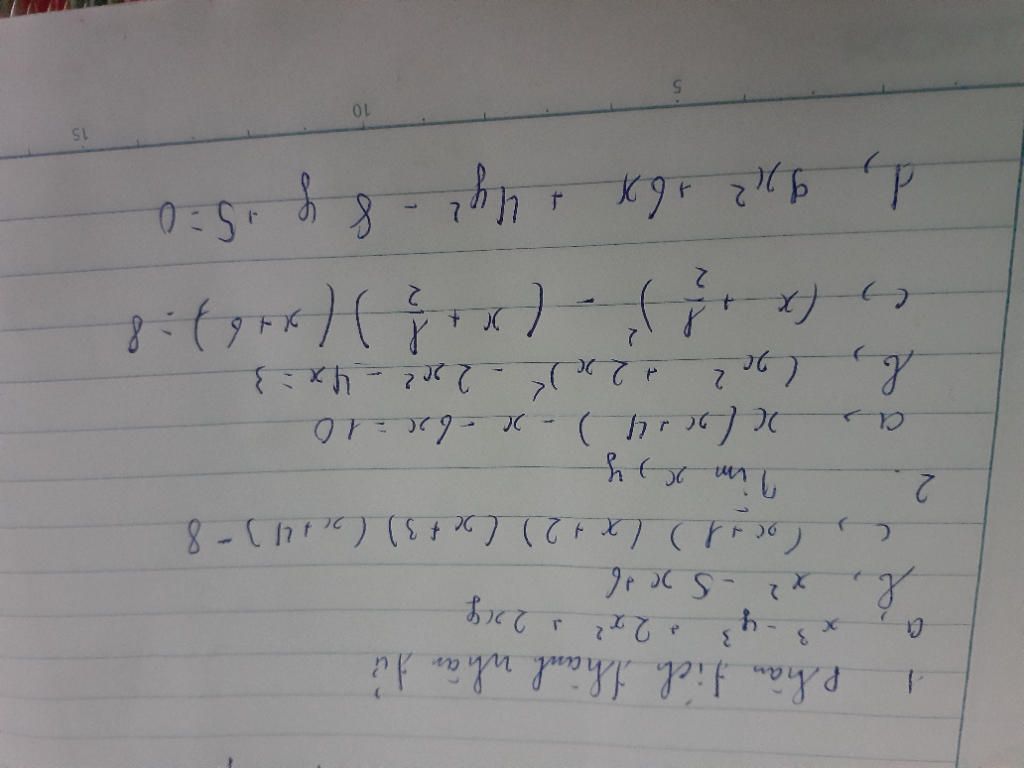 1 Phân tích thành nhân tử
a, x³ - y³ + 2x² + 2xy
b, x² - 5x + 6
c, (x+1)(x+2)(x+3)(x+4) - 8
2. Tìm x, y
a, x(x+4) - x - 6x = 10
b, (x² + 2x)² - 2x² - 4x = 3
c, (x + 1/2)² - (x + 1/2)(x+6) = 8
d, 9x² + 6x + 4y² - 8y + 5 = 0
5 10 15